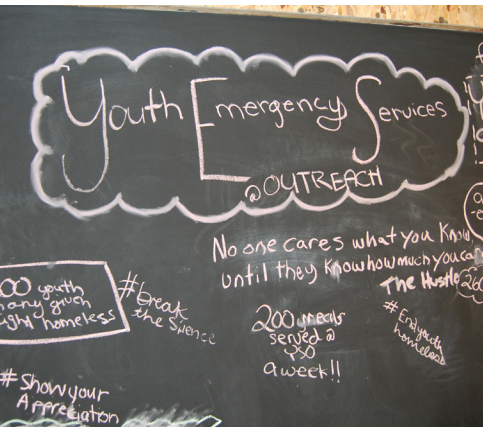 Youth Emergency Services
@OUTREACH
No one cares what you know
until they know how much you ca
The Hustle
00 youth
any given
ight homeless
#break
the Silence
200 meals
served @
YSO
a week!!
#Endyouth
homeless
#Showyour
Appreciation